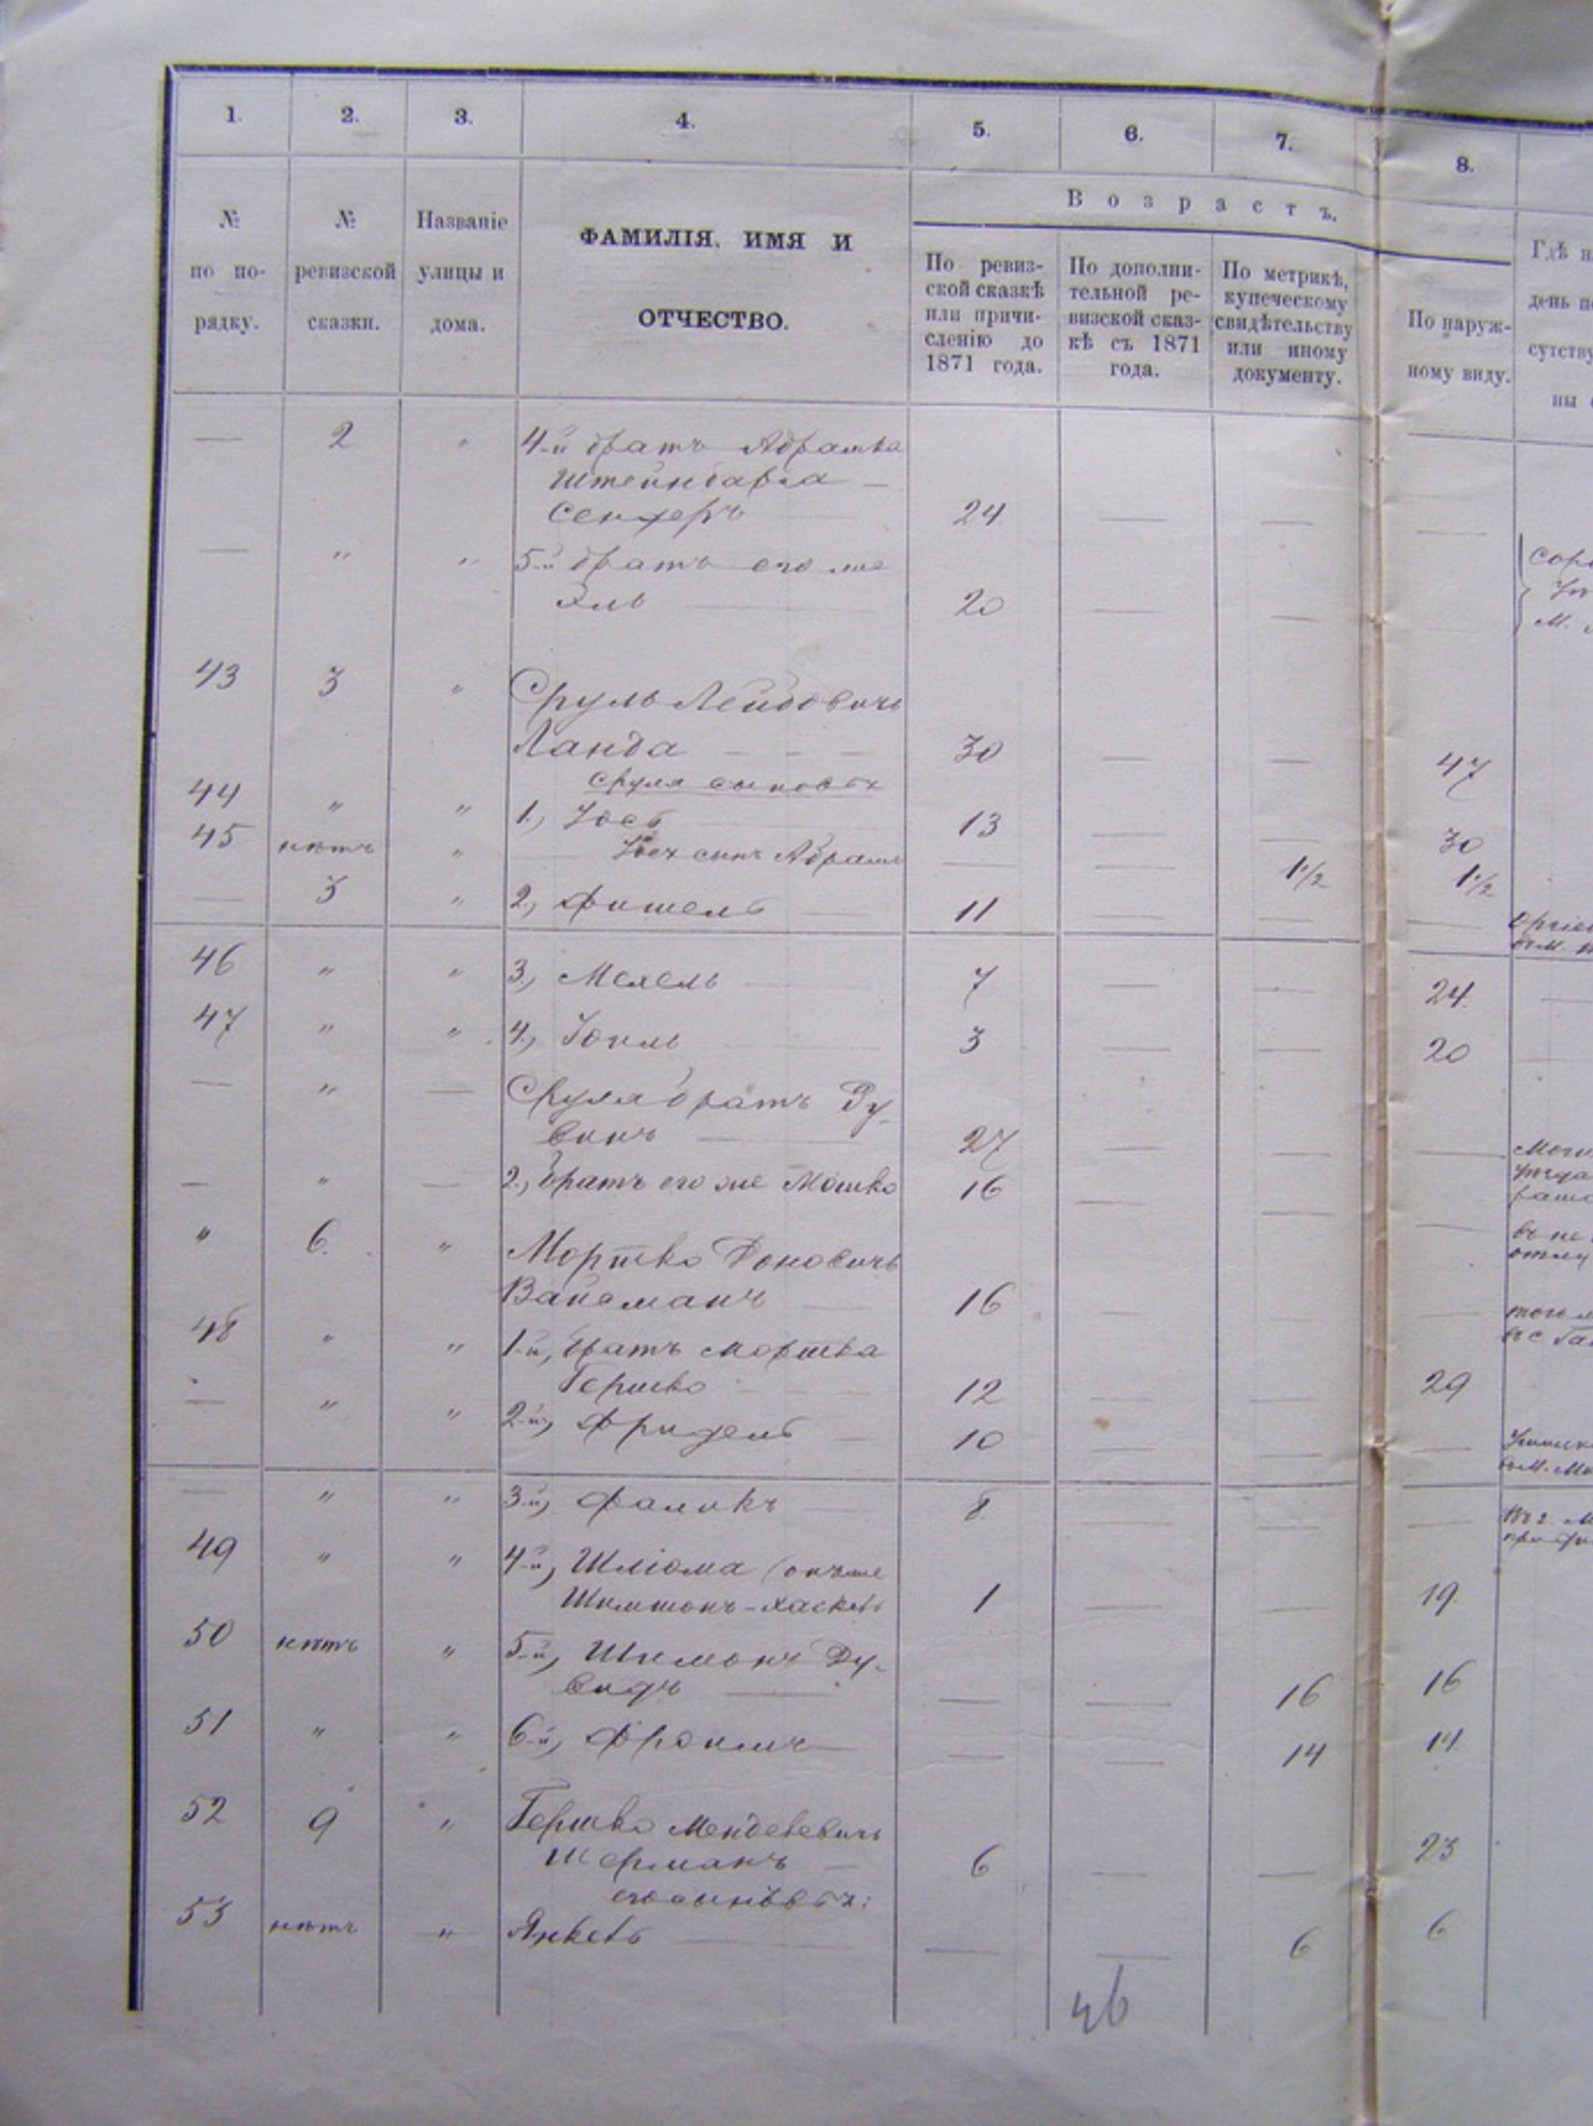 1. 2. 3. 4. 5. 6. 7. 8.
В о з р а с т ъ.
№ по по- рядку.
№ ревизской сказки.
Названіе улицы и дома.
ФАМИЛІЯ, ИМЯ И
ОТЧЕСТВО.
По ревиз-
ской сказкѣ
или причи-
сленію до
1871 года.
По дополни-
тельной ре-
визской сказ-
кѣ съ 1871
года.
По метрикѣ,
купеческому
свидѣтельству
или иному
документу.
По наруж-
ному виду.
Гдѣ н
день п
сутству
ны
— 2 " 4-й братъ Абрамка
Штейнбарга —
Сендеръ 24 — — —
— " " 5-й братъ его же
Хль 20 — —
Соро
М.
43 3 " Сруль Лейбовичъ
Ланда — — — 30 — — 47
Сруля сыновья
44 " " 1., Iосъ 13 — — 30
45 нѣтъ " — Iося сынъ Абрамъ — — 1 1/2 1 1/2
— 3 " 2., Фишель — 11 — — —
46 " " 3., Мехель 7 — — 24 —
47 " " 4., Iоиль 3 — — 20 —
— " — Сруля братъ Ру-
винъ 27 — — —
— " — 2., братъ его же Мошко 16 — —
" 6. " Моршко Доновичъ
Вайсманъ — 16 —
48 " " 1-й, братъ Моршка
Гершко 12 — — 29
— " " 2-й, Фридель — 10 — — —
— " " 3-й, Фаликъ 8 — — —
49 " " 4-й, Шліома (онъ же
Шимшонъ-Хаскель 1 — — 19.
50 нѣтъ " 5-й, Шимонъ Ду-
видъ — — — 16 16
51 " " 6-й, Фроимъ — — — 14 14
52 9 " Гершко Менделевичъ
Шерманъ — 6 — — 23
его сыновья:
53 нѣтъ " Янкель — — — 6 6
46